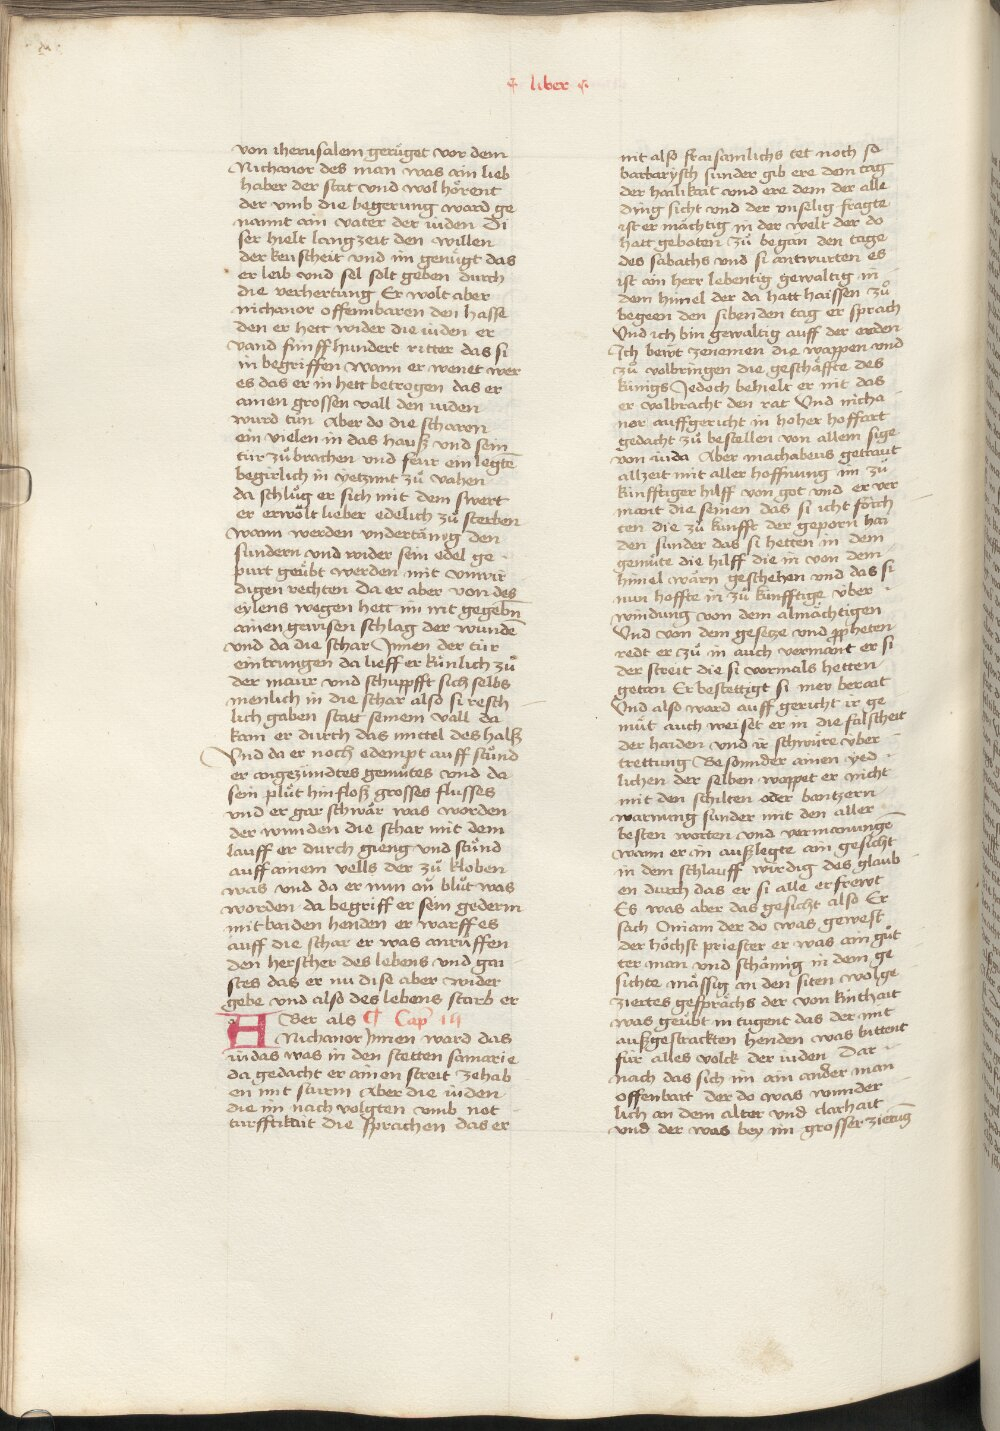 liber
von iherusalem gerüget vor dem
Nichanor des man was ain lieb
haber der stat vnd wol hörent
der vmb die begerung ward ge
nannt ain vater der iuden Di
ser hielt langzeit den willen
der keuscheit vnd im genügt das
er leib vnd sel solt geben durch
die verhertung Er wolt aber
nichanor offennbaren den hasse
den er hett wider die iuden er
sand fünff hundert ritter das si
in begriffen wann er wenet wer
es das er in hett betrogen das er
ainen grossen vall den iuden
wurd tün Aber do die scharen
ein vielen in das hauß vnd sein
tür zůbrachen vnd feur ein legtē
begirlich in yetzunt zů vahen
da schlůg er sich mit dem swert
er erwölt lieber edelich zů sterben
wann werden vndertänig den
sundern vnd wider sein edel ge
purt geübt werden mit vnwir
digen rechten Da er aber von des
eylens wegen hett im nit gegebn̄
ainen gewisen schlag der wundē
vnd da die schar Innen der tür
eintrungen da lieff er künlich zů
der maur vnd schuppfft sich selbs
menlich in die schar also si resch
lich gaben statt seinem vall da
kam er durch das mittel des halß
Vnd da er noch edempt auff stůnd
er angezündtes gemütes vnd da
sein plůt hin floß grosses flusses
vnd er gar schwär was worden
der wunden die schar mit dem
lauff er durch gieng vnd stůnd
auff ainem vells der zů kloben
was vnd da er nun on blůt was
worden da begriff er sein gederm
mit baiden henden er warff es
auff die schar er was anrüffen
den herscher des lebens vnd gai
stes das er im dise aber wider
gebe vnd also des lebens starb er
ABer als ¶ Cap 14
Nichanor Innen ward das
iudas was in den stetten samarie
da gedacht er ainen streit zehab
en mit sturm Aber die iuden
die im nach volgten vmb not
turfftikait die sprachen das er
nit also fraisamlichs tet noch so
barbarysch sunder gib ere dem tag
der hailikait vnd ere dem der alle
ding sicht vnd der vnselig fragte
ist er mächtig in der welt der do
hatt geboten zů began den tage
des sabaths vnd si antwurten es
ist ain herr lebentig gewaltig in
dem himel der da hatt haissen zů
begeen den sibenden tag er sprach
Vnd ich bin gewaltig auff der erden
Ich bewt zenemen die wappen vnd
zů volbringen die geschäffte des
künigs Jedoch behielt er nit das
er volbracht den rat Vnd nicha
nor auffgericht in hoher hoffart
gedacht zů bestellen von allem sige
von iuda Aber machabeus getraut
allzeit mit aller hoffnung im zů
künfftiger hilff von got vnd er ver
mant die seinen das si icht förch
ten die zů kunfft der geporn hai
den sunder das si hetten in dem
gemüte die hilff die in von dem
himel wärn geschehen vnd das si
nun hoffte in zů künfftige vber
windung von dem almächtigen
Vnd von dem gesetze vnd ꝓpheten
redt er zů in auch vermant er si
der streit die si vormals hetten
getan Er bestettigt si mer berait
Vnd also ward auff gericht ir ge
müt auch weiset er in die falscheit
der haiden vnd ir schwüre vber
trettung Besonnder ainen yed
lichen der selben wappet er nicht
mit den schilten oder bantzern
warnung sunder mit den aller
besten worten vnd vermanungē
wann er in außlegte ain gesicht
in dem schlauff wirdig des glaub
en durch das er si alle erfrewt
Es was aber das gesicht also Er
sach Oniam der do was gewest
der höchst priester er was ain gůt
ter man vnd schämig in dem ge
sichte mässig an den siten wolge
ziertes gesprächs der von kinthait
was geübt in tugent das der mit
außgestrackten henden was bittent
für alles volck der iuden Dar
nach das sich im ain ander man
offenbart der do was wunder
lich an dem alter vnd clarhait
vnd der was bey im grosser zierug̅